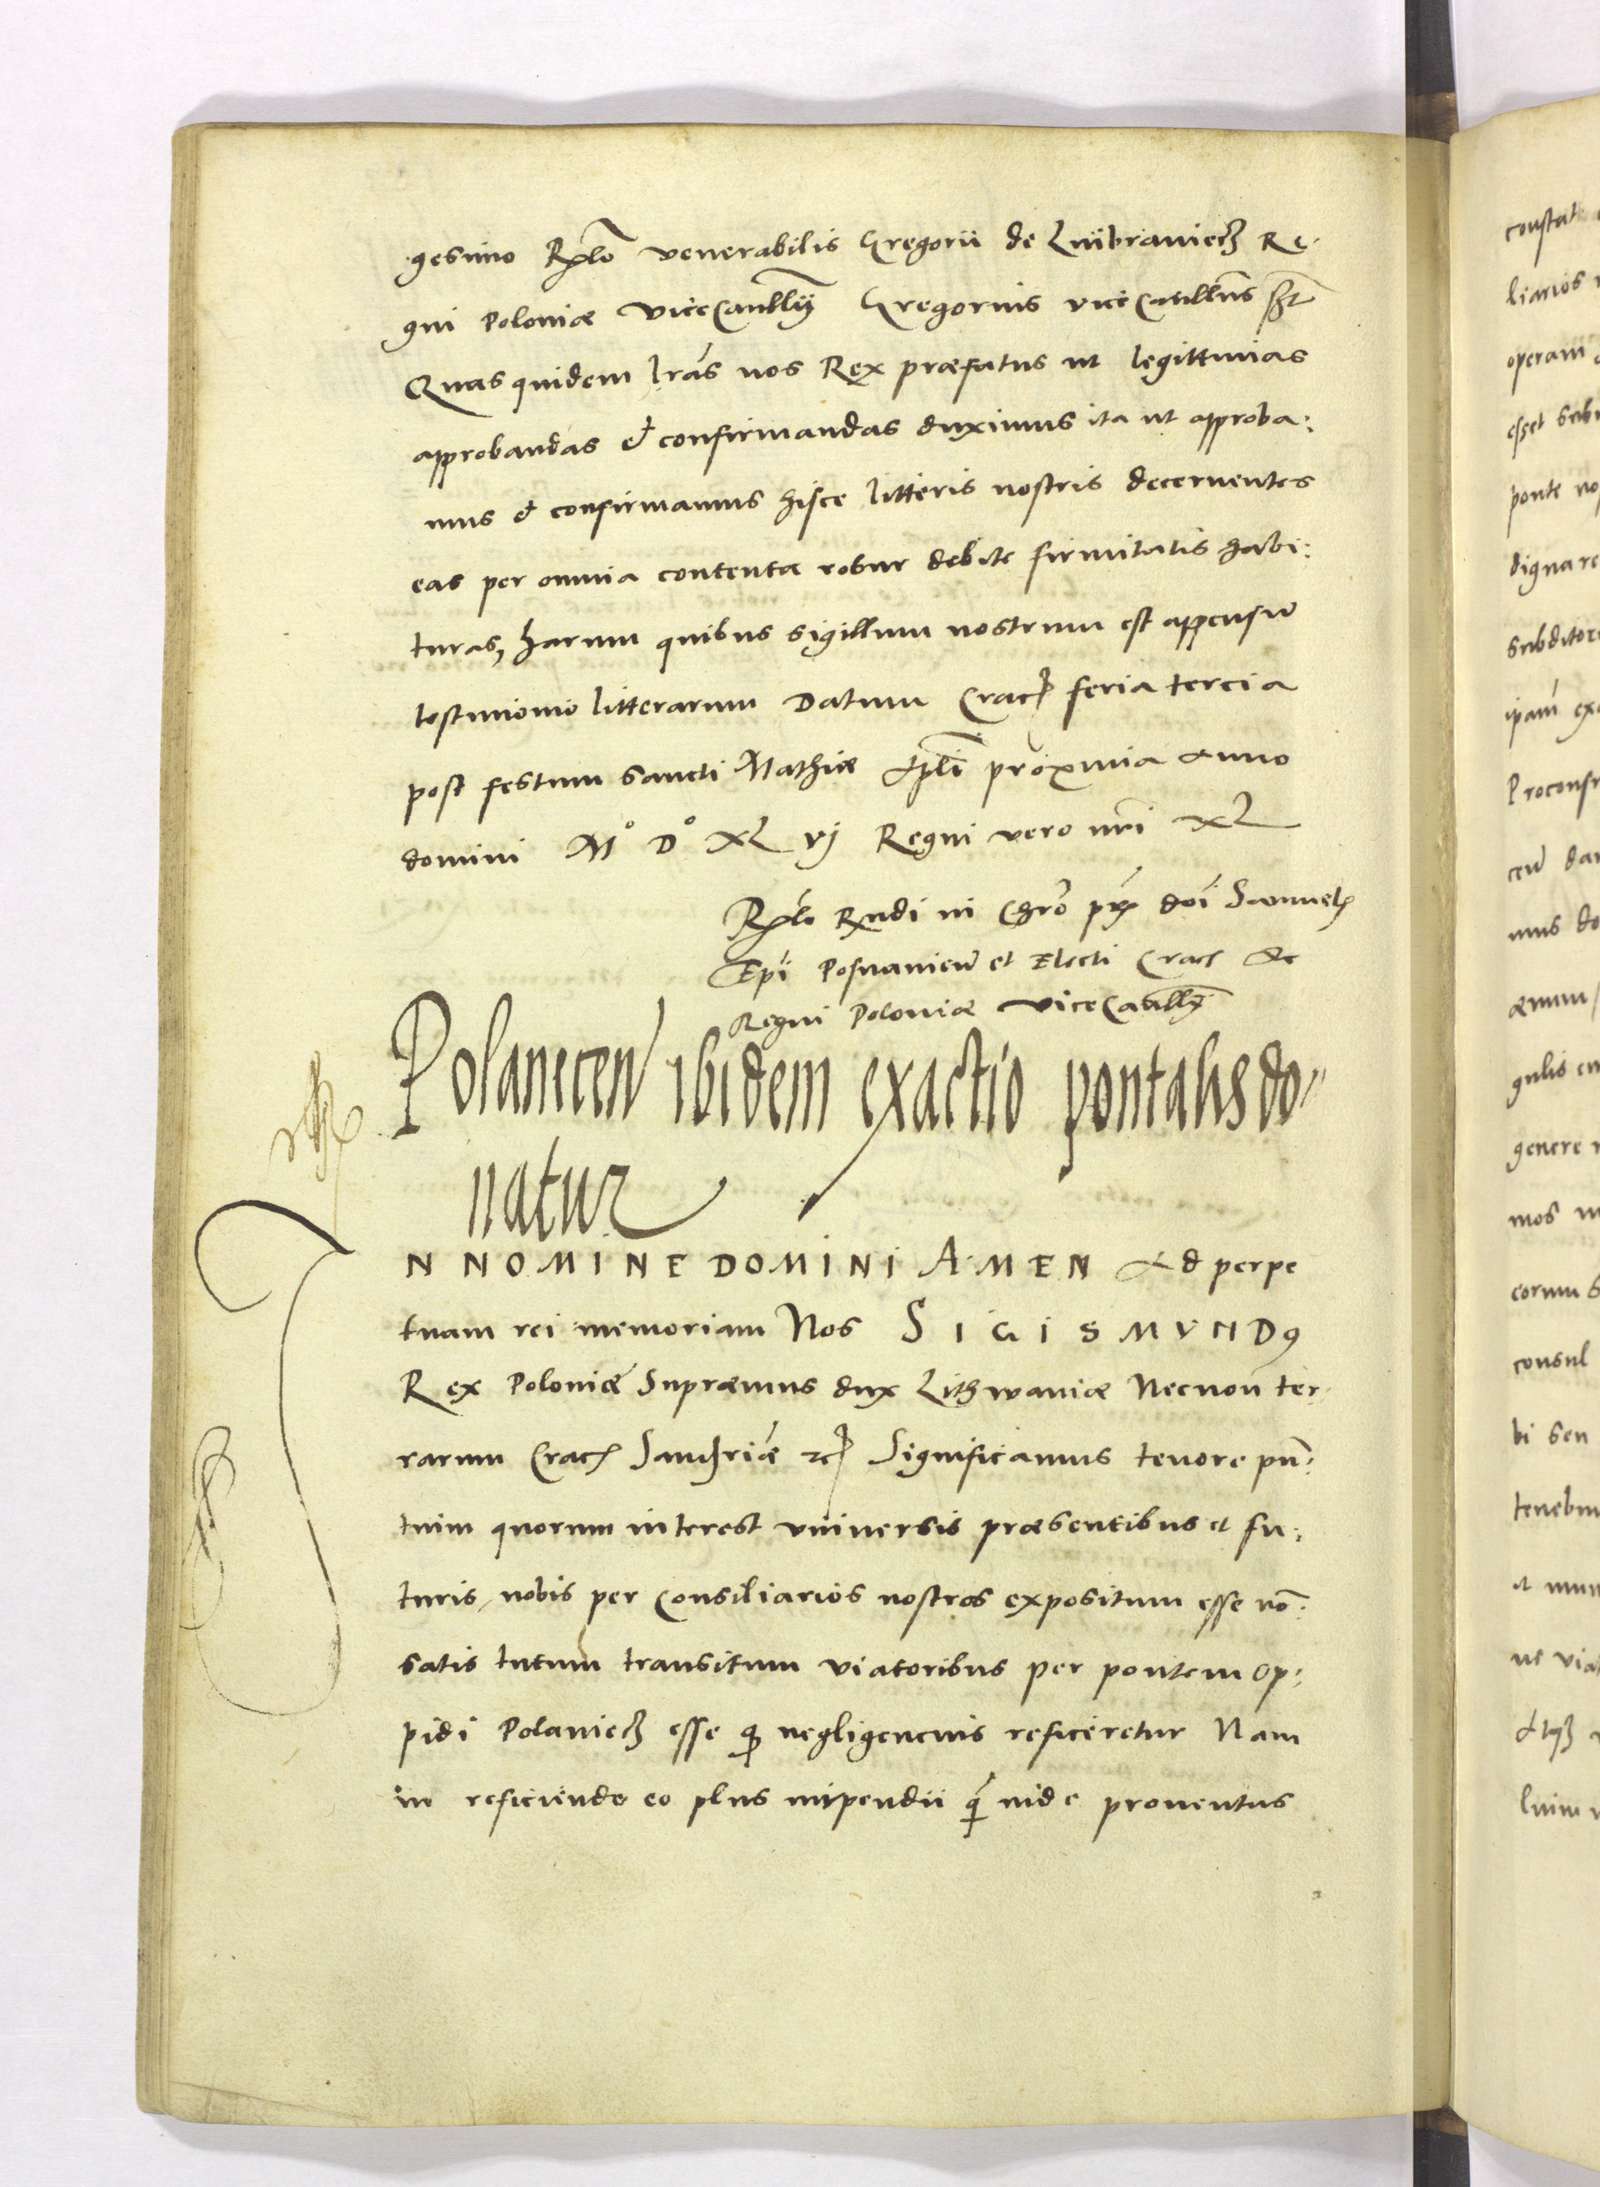 gesimo Rłlo venerabilis Gregorii de Lubraniecz Re-
gni Poloniæ ViceCancllrij Gregorius viceCancllrius sszt
Quas quidem lras nos Rex præfatus ut legittimas
approbandas et confirmandas duximus ita ut approba:
mus et confirmamus hisce litteris nostris decernentes
eas per omnia contenta robur debite firmitatis habi:
turas, harum quibus sigillum nostrum est appensum
testimonio litterarum Datum Crac feria tercia
post festum sancti Mathiæ Apli proxima Anno
domini M° D° XL vj Regni vero nri XL
Rłlo Rndi in Chro prs dni Samuelis
Epi Posnanien et Electi Crac &c
Regni Poloniæ ViceCancllrij
Polaniecen ibidem exactio pontalis do-
natur
N NOMINE DOMINI AMEN Ad perpe
tuam rei memoriam Nos SIGISMVNDꝰ
Rex Poloniæ Supræmus dux Lithwaniæ Necnon ter-
rarum Crac Sandriæ etc Significamus tenore pñ:
tium quorum interest vniversis præsentibus et fu:
turis, nobis per Consiliarios nostros expositum esse nõ:
satis tutum transitum viatoribus per pontem op:
pidi Polaniecz esse qꝫ negligencius reficeretur Nam
in reficiendo eo plus inpendii qm inde prouentus
constat
liarios
operam
esset
ponte
digna re
subditor
ipam ex
Proconsu
ceu dar
mus do
ærum
gulis
genere
mos
eorum
consul
bi seu
tenebun
et mun
ne viat
Atqꝫ
luim